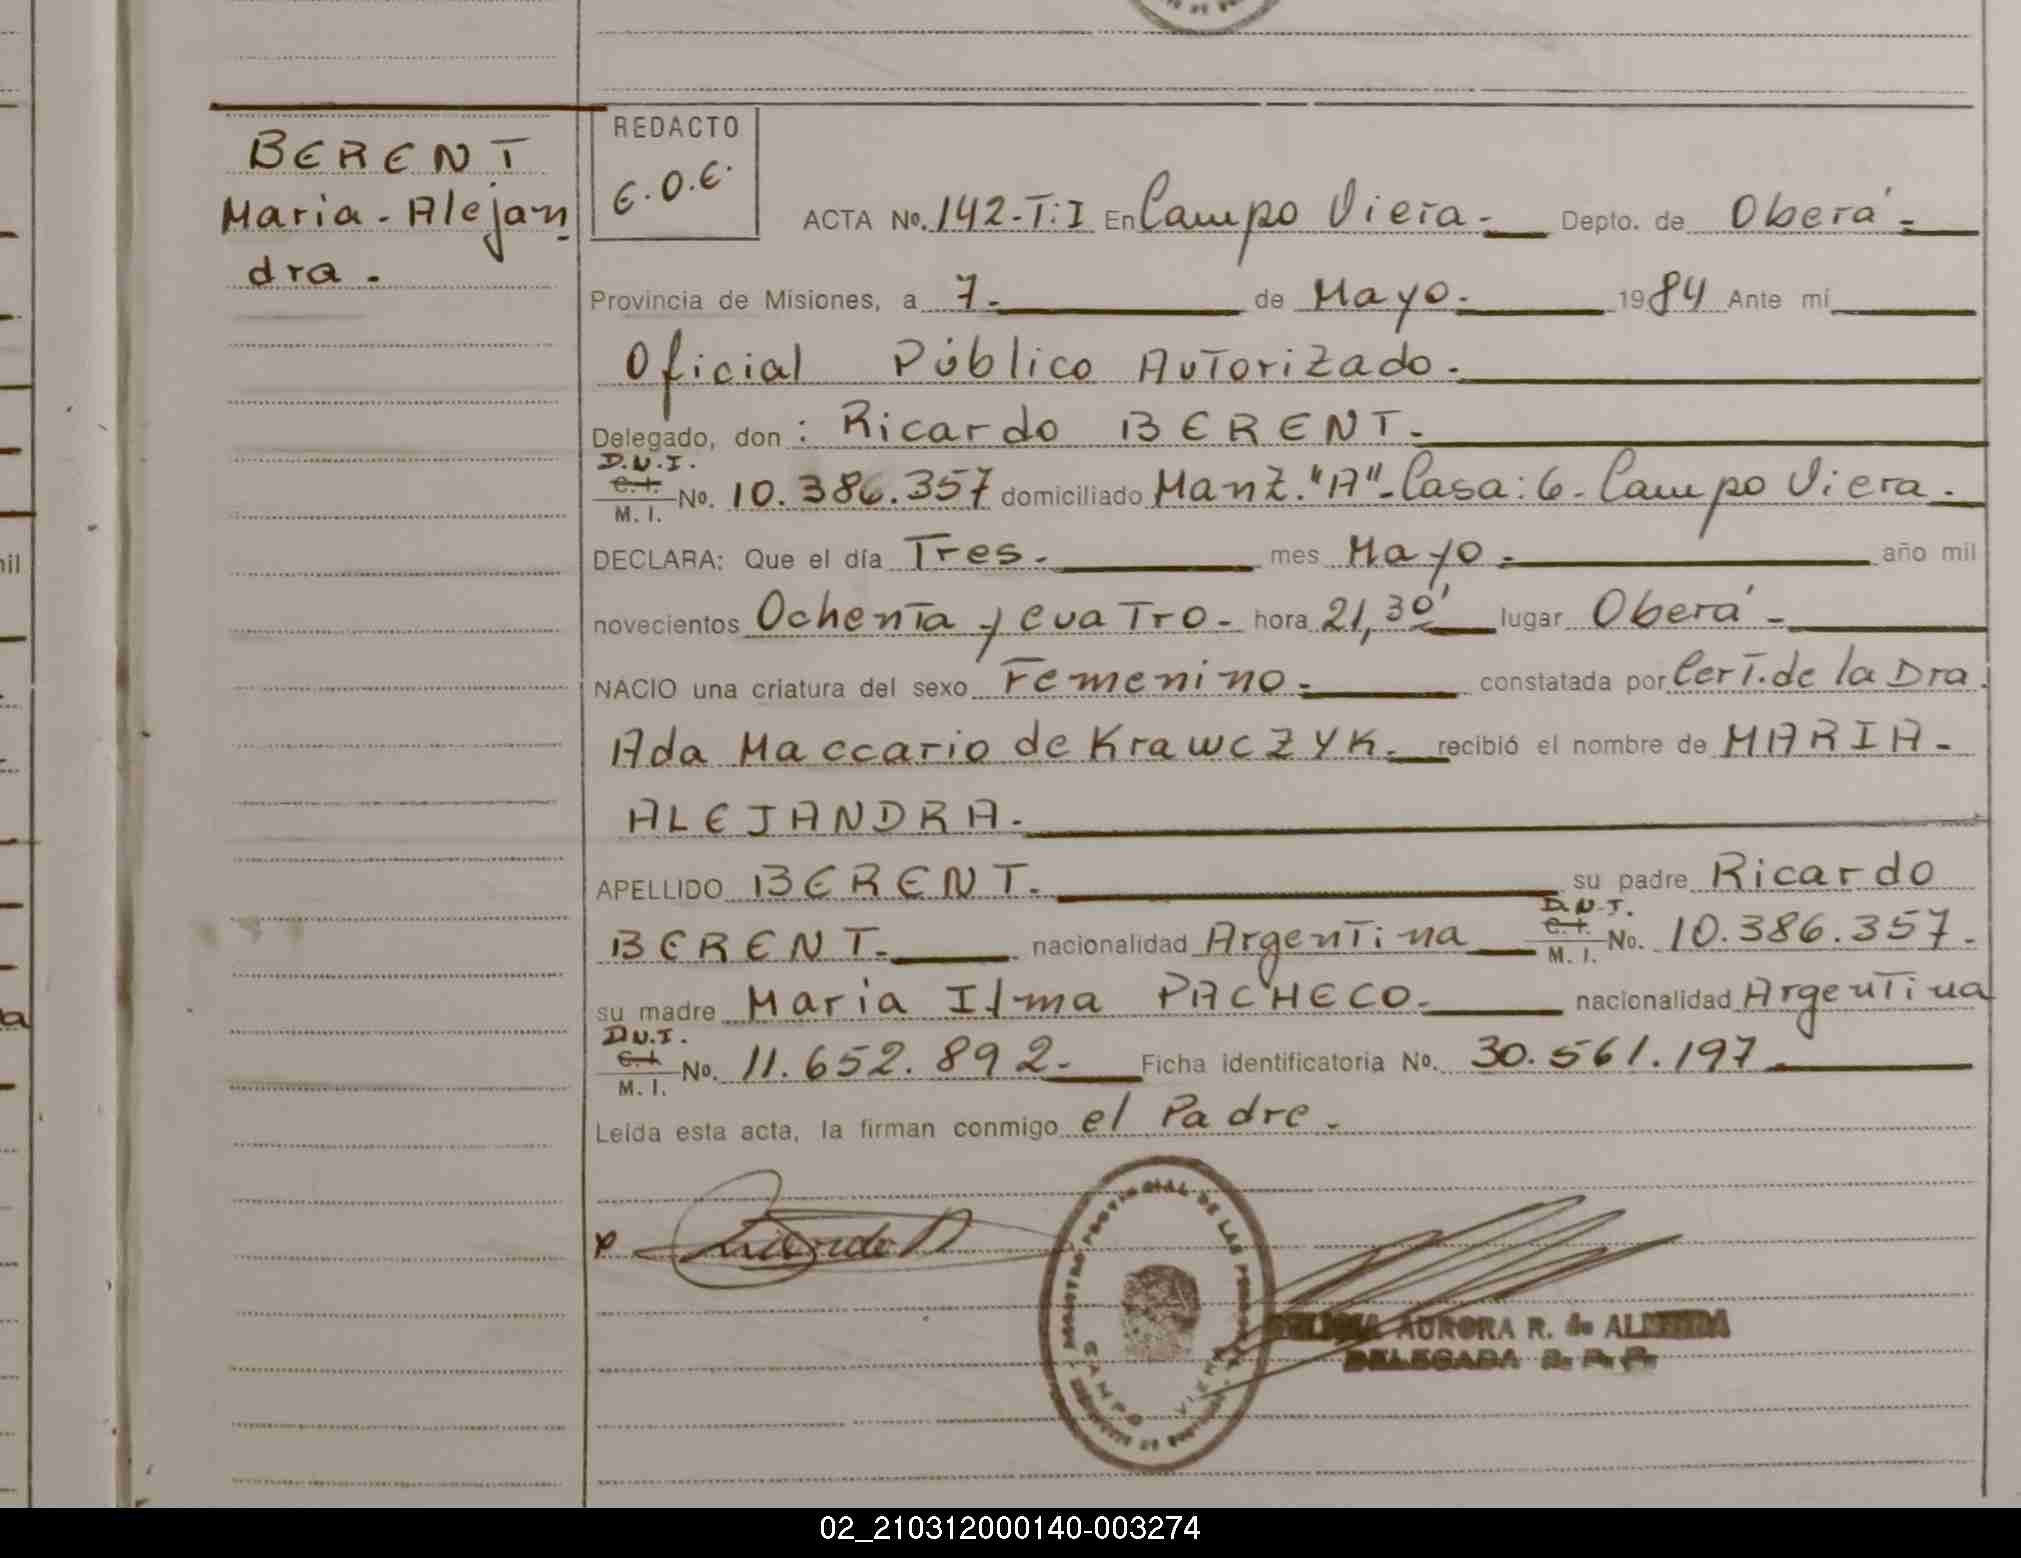 BERENT
Maria-Alejan
dra.
REDACTO
E.O.E.
ACTA No. 142-T:I En Campo Viera- Depto. de Oberá-
Provincia de Misiones, a 7. de Mayo. 1984 Ante mí
Oficial Público Autorizado.
Delegado, don: Ricardo BERENT.
D.N.I.
C.I.
M. I. No. 10.386.357 domiciliado Manz."A"-Casa:6-Campo Viera.
DECLARA: Que el día Tres. mes Mayo. año mil
novecientos Ochenta y cuatro- hora 21,30' lugar Oberá-
NACIO una criatura del sexo Femenino. constatada por Cert.de la Dra.
Ada Maccario de Krawczyk. recibió el nombre de MARIA-
ALEJANDRA.
APELLIDO BERENT. su padre Ricardo
D.N.I.
C.I.
BERENT. nacionalidad Argentina M. I. No. 10.386.357.
su madre Maria Ilma PACHECO. nacionalidad Argentina
D.N.I.
C.I.
M. I. No. 11.652.892- Ficha identificatoria No. 30.561.197
Leída esta acta, la firman conmigo el Padre.
PROVINCIAL DE LAS
CAMPO VIERA
AURORA R. de ALMEIDA
DELEGADA
nil
a
02_210312000140-003274